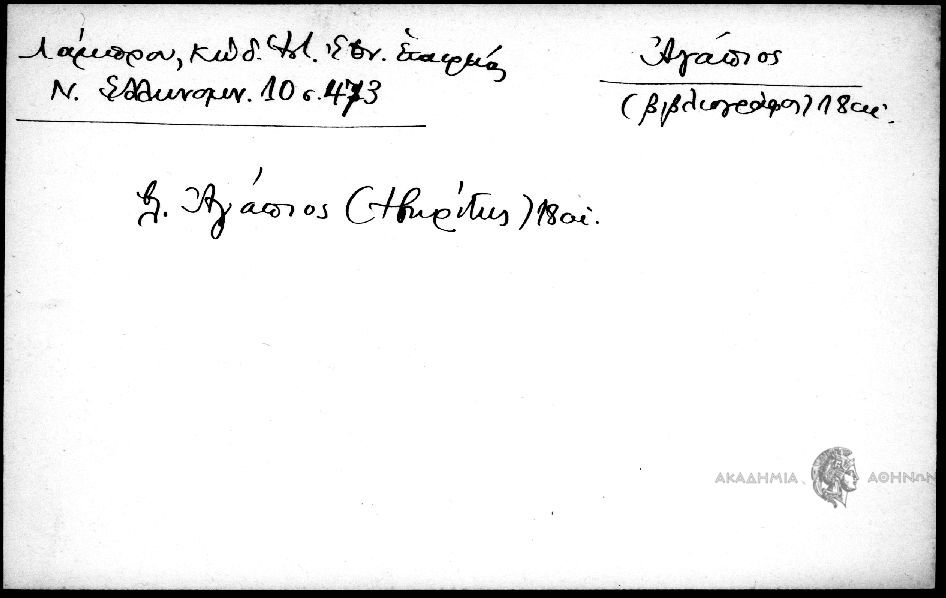 Λάμπρου, Κώδ. Ἱστ. Ἐθν. Ἑταιρίας
Ν. Ἑλληνομν. 10 σ. 473
Ἀγάπιος
(βιβλιογράφος) 18 αἰ.
βλ. Ἀγάπιος (Ἰβηρίτης) 18 αἰ.
ΑΚΑΔΗΜΙΑ ΑΘΗΝΩΝ